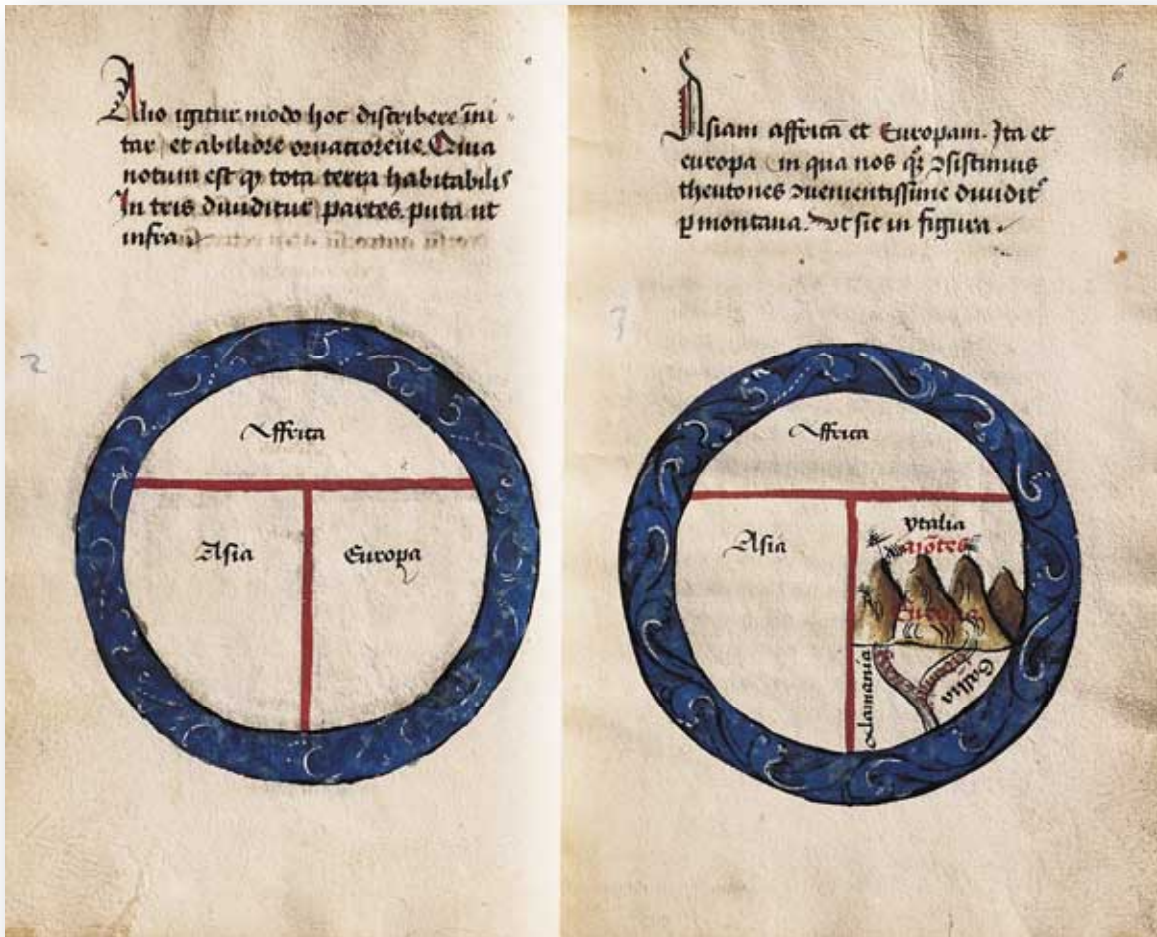 Alio igitur modo hoc discribere ini
tar et abiliore ornatiore Quia
notum est qͥ tota terra habitabilis
In tris diuiditur partes. puta ut
infra
Affrica
Asia
Europa
6
Asiam affricā et Europam. Ita et
europa in qua nos
theutones diuidit
montana. vt sic in figura.
Affrica
Asia
ytalia
mōtes
Europa
Alamania
Gallia